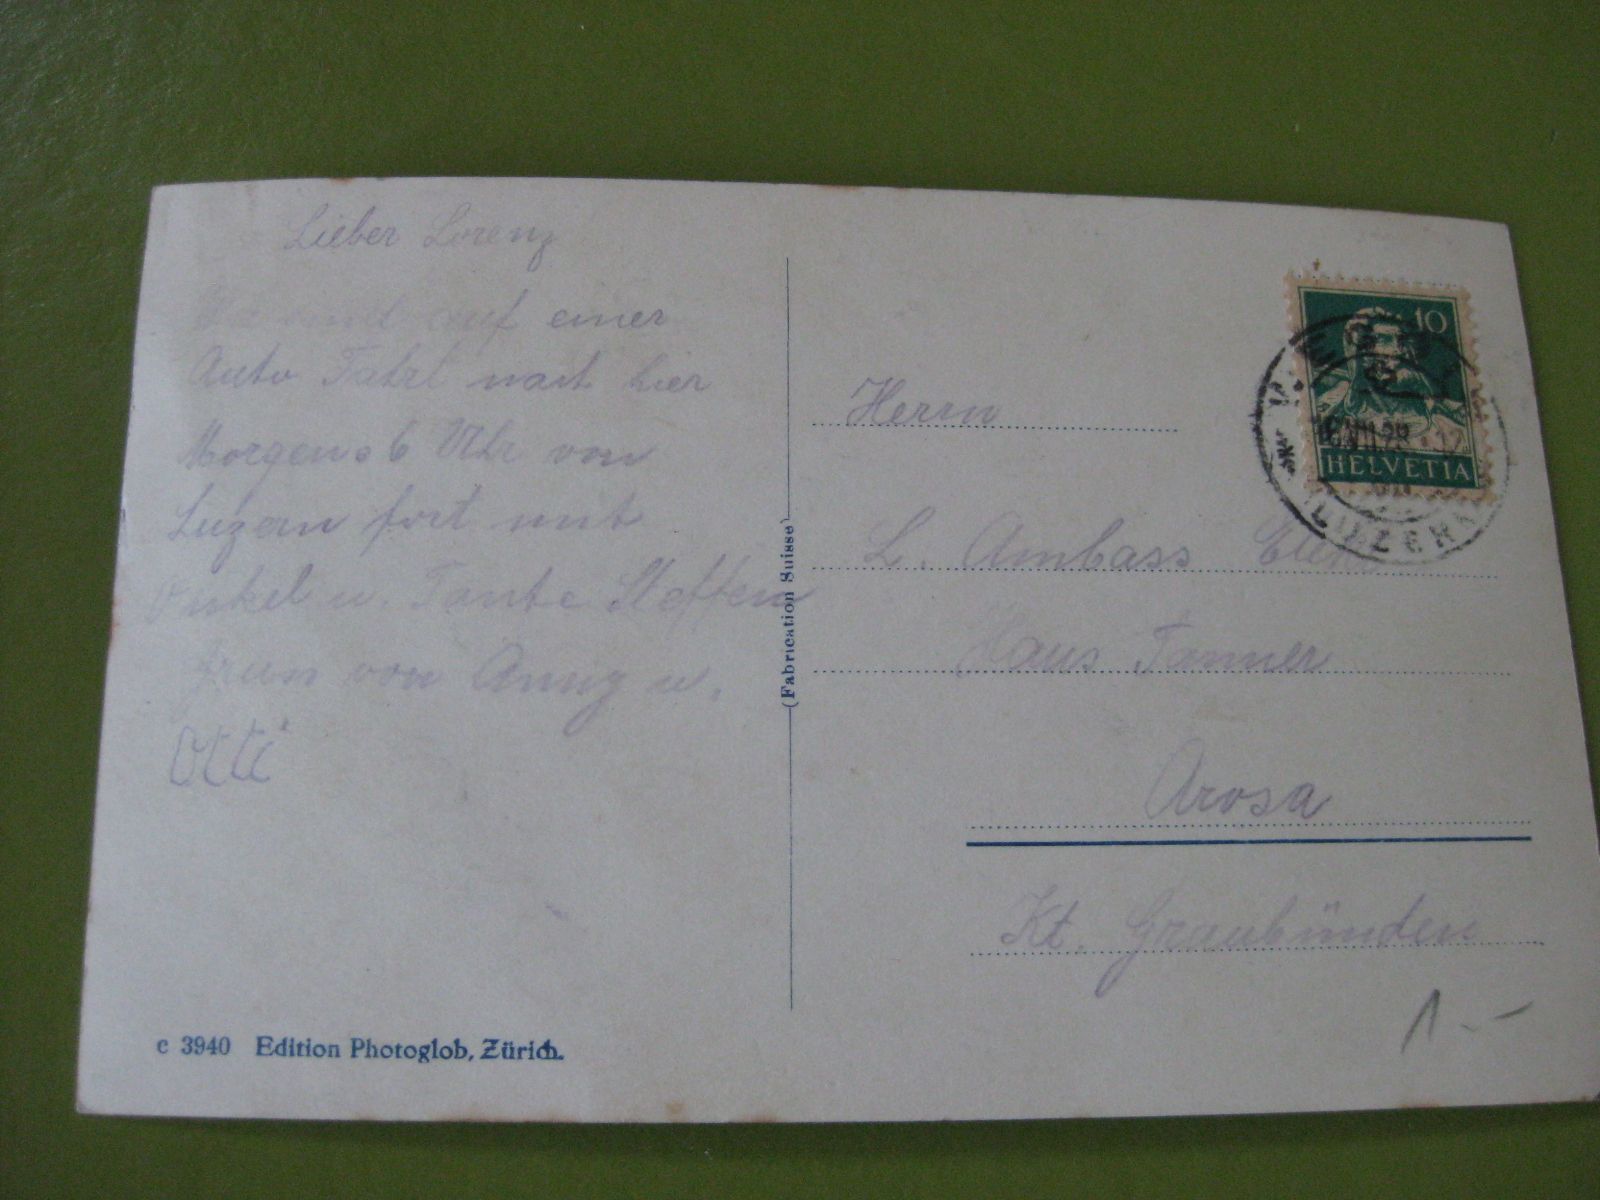 Lieber Lorenz
auf einer
Auto Fahrt nach hier
Morgens 6 Uhr von
Luzern fort mit
Onkel u. Tante Steffen
von Anny u.
Otti
c 3940 Edition Photoglob, Zürich.
(Fabrication Suisse)
10
HELVETIA
LUZERN
Herrn
L. Ambass
Haus Tanner
Arosa
Kt. Graubünden
1.-